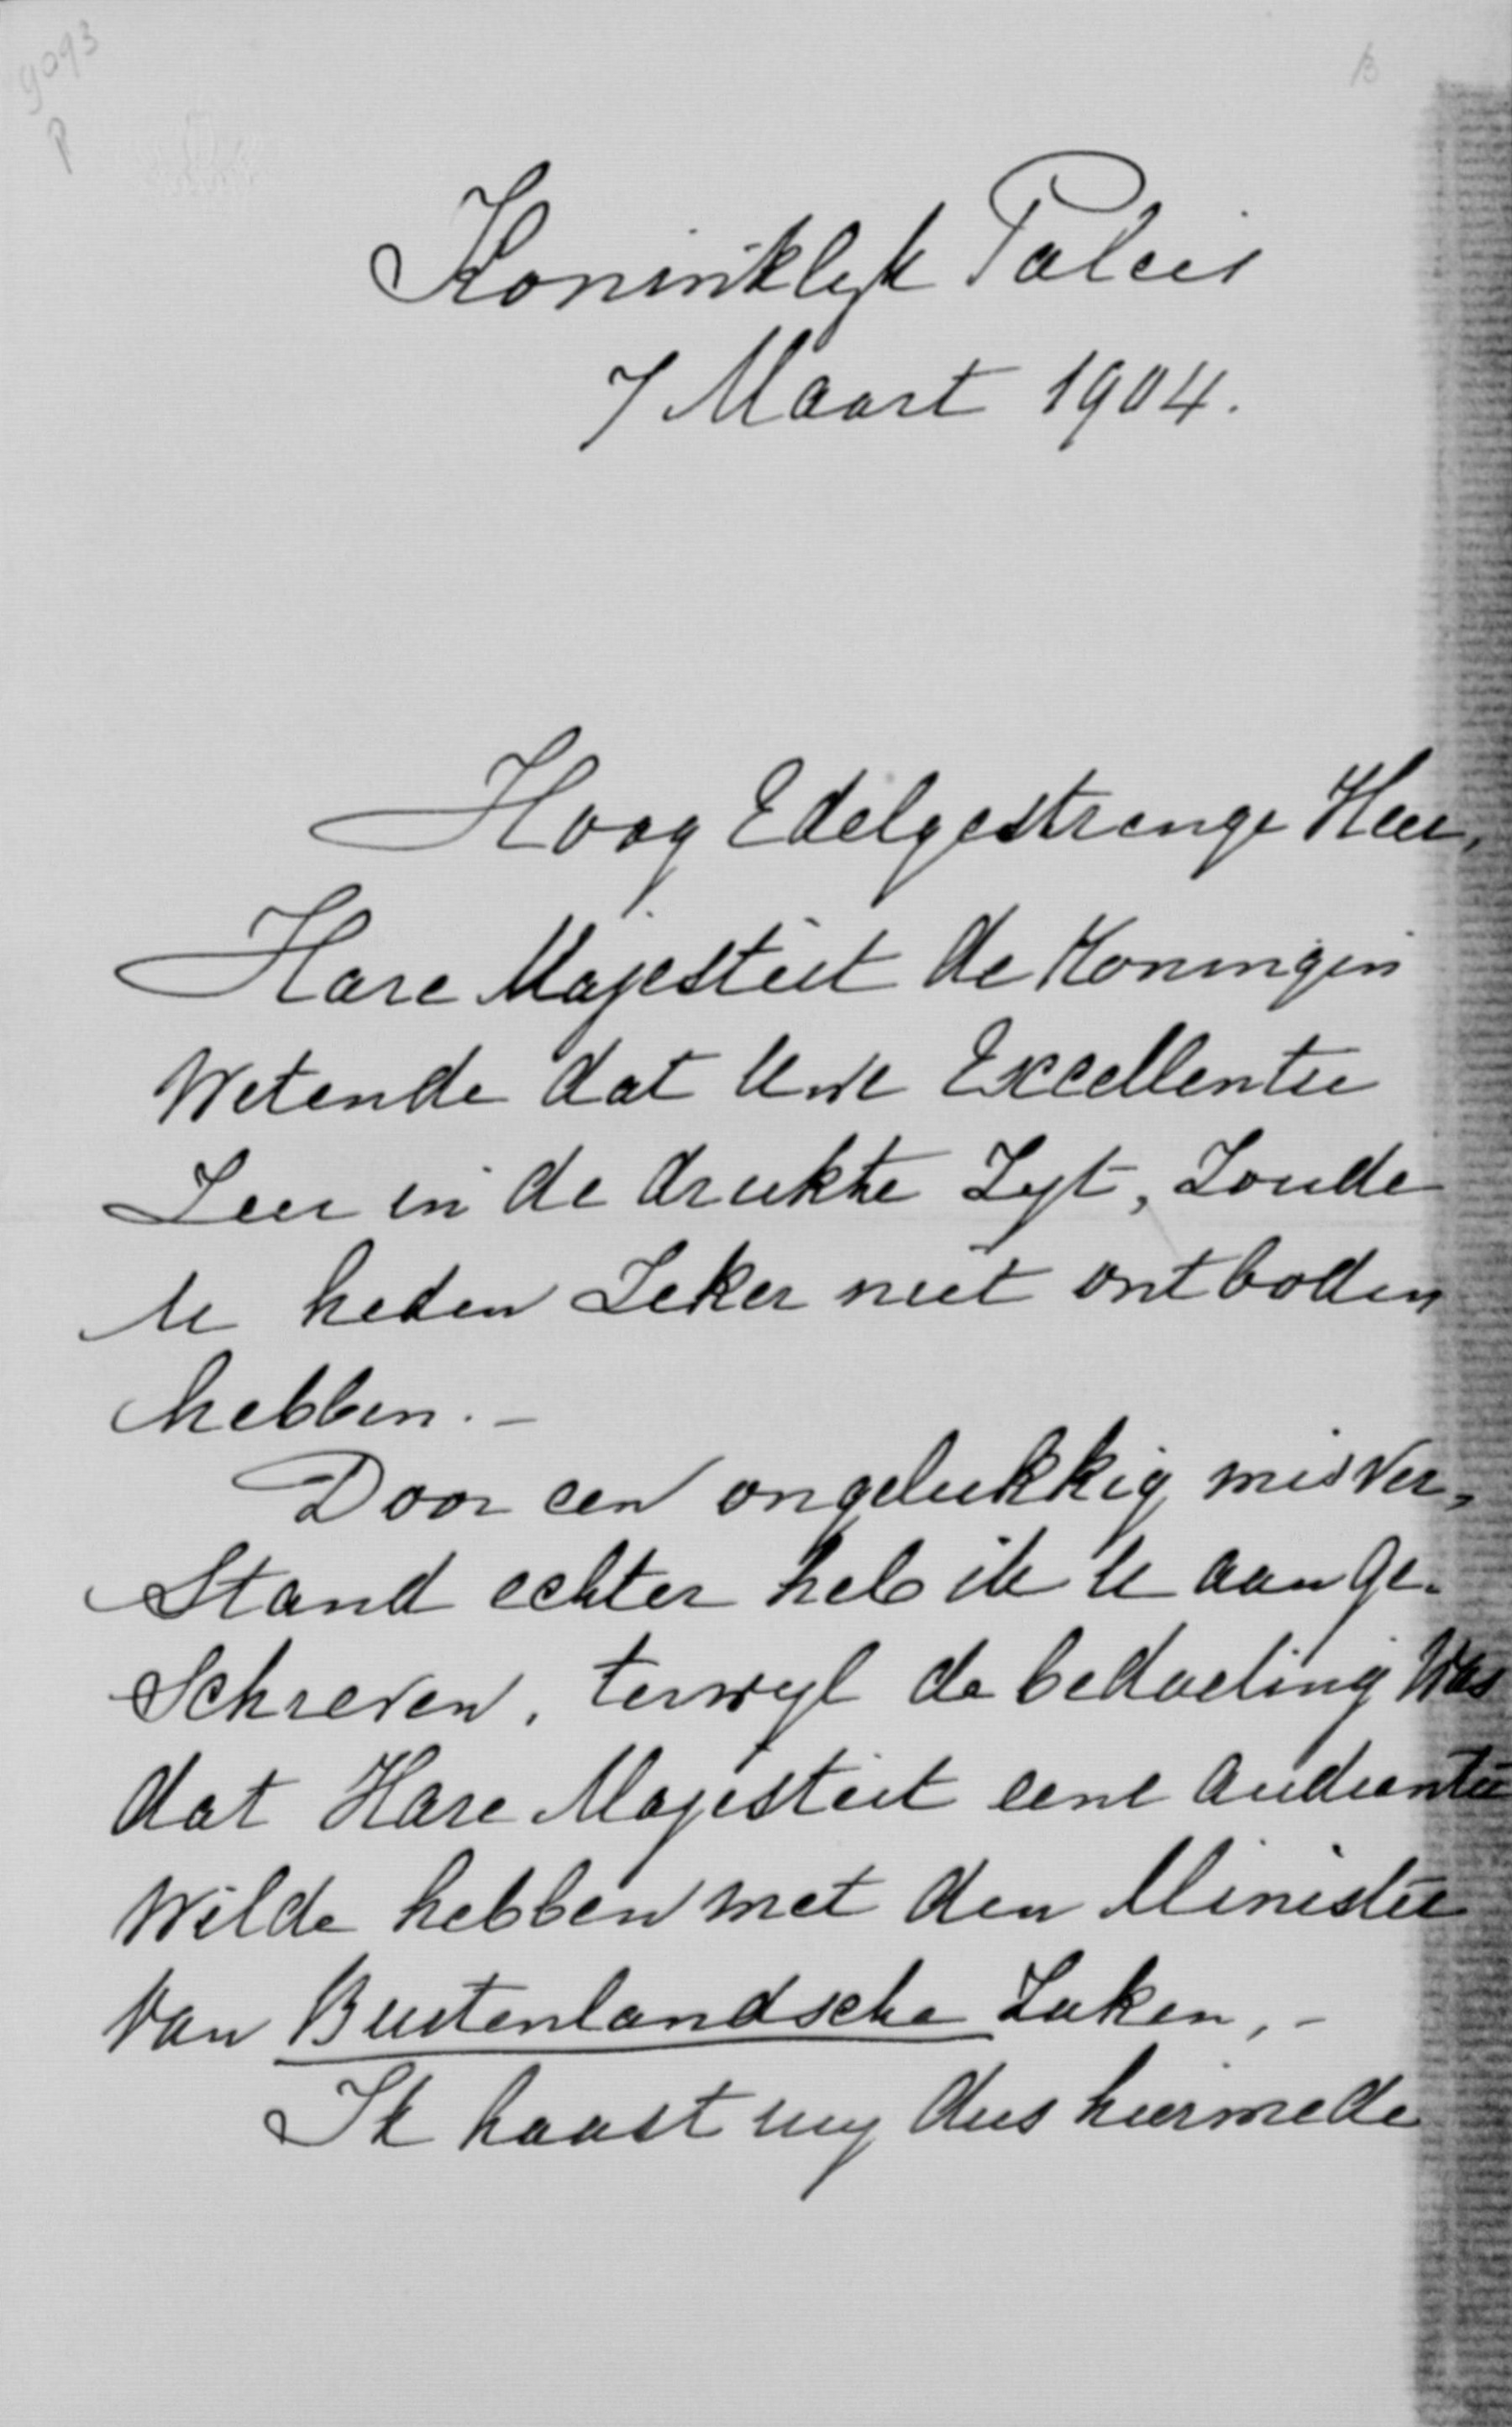 9093
P
Koninklijk Paleis
7 Maart 1904.
Hoog Edelgestrenge Heer,
Hare Majesteit de Koningin
Wetende dat Uwe Excellentie
Zeer in de drukte Zijt, Zoude
U heden Zeker niet ontboden
hebben. –
Door een ongelukkig misver-
Stand echter heb ik U aange-
Schreven, terwijl de bedoeling Was
dat Hare Majesteit eene audientie
Wilde hebben met den Minister
Van Buitenlandsche Zaken, –
Ik haast mij dus hiermede